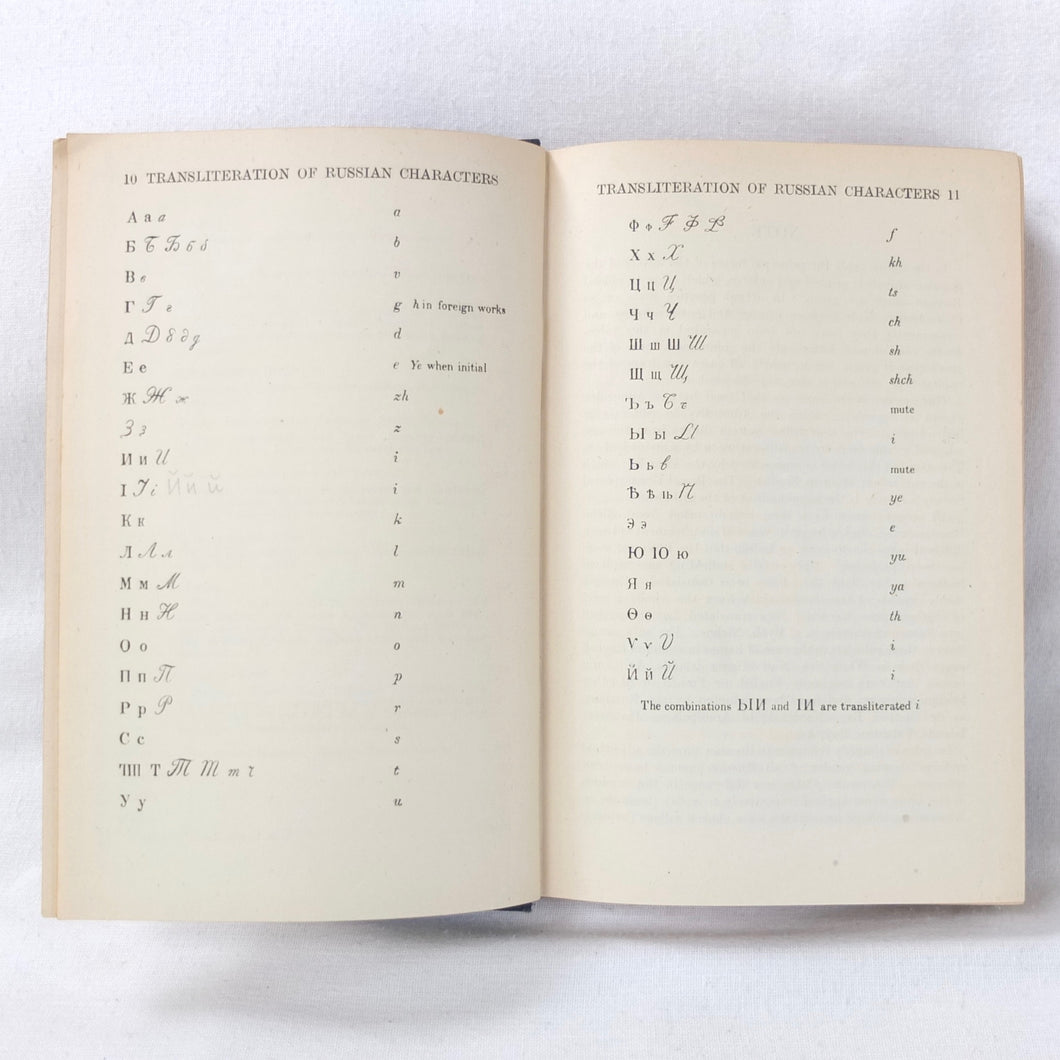 10 TRANSLITERATION OF RUSSIAN CHARACTERS
А а а a
Б Б Б б б b
В в v
Г Г г g h in foreign works
Д Д д д д d
Е е e Ye when initial
Ж Ж ж zh
З з z
И и И i
І І і Й й й i
К к k
Л Л л l
М м М m
Н н Н n
О о o
П п П p
Р р Р r
С с s
Ш Т Т Т т т t
У у u
TRANSLITERATION OF RUSSIAN CHARACTERS 11
Ф ф Ф Ф Ф f
Х х Х kh
Ц ц Ц ts
Ч ч Ч ch
Ш ш Ш Ш sh
Щ щ Щ shch
Ъ ъ Ъ ъ mute
Ы ы Ы i
Ь ь ь mute
Ѣ ѣ ѣ Ѣ ye
Э э e
Ю Ю ю yu
Я я ya
Ѳ ѳ th
Ѵ ѵ Ѵ i
Й й Й i
The combinations ЫИ and ІИ are transliterated i